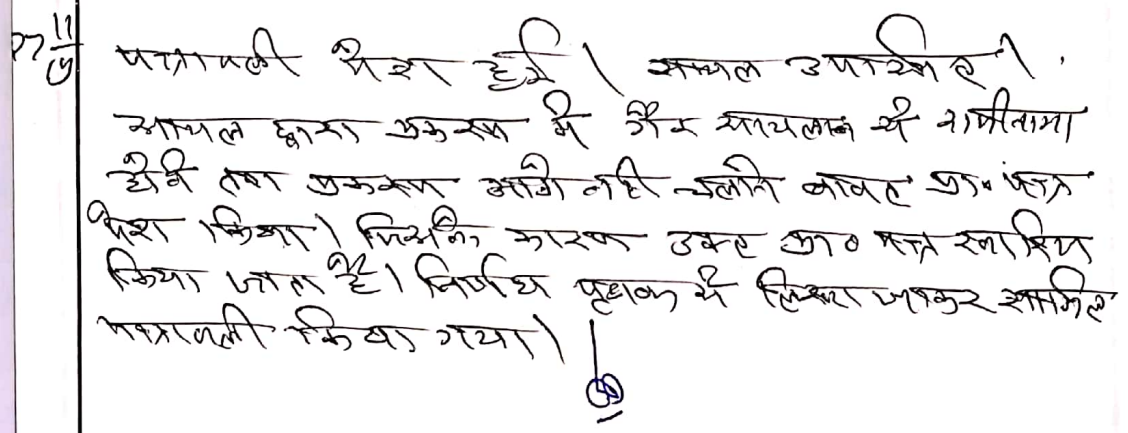 पत्रावली पेश हुई। सायल उपस्थित।
सायल द्वारा प्रकरण में गैर सायलान से राजीनामा
होने तथा प्रकरण आगे नही चलाने बाबत प्रा० पत्र
पेश किया। जिसके कारण उक्त प्रा० पत्र खारिज
किया जाता है। निर्णय पृथक से लिखा जाकर शामिल
पत्रावली किया गया।